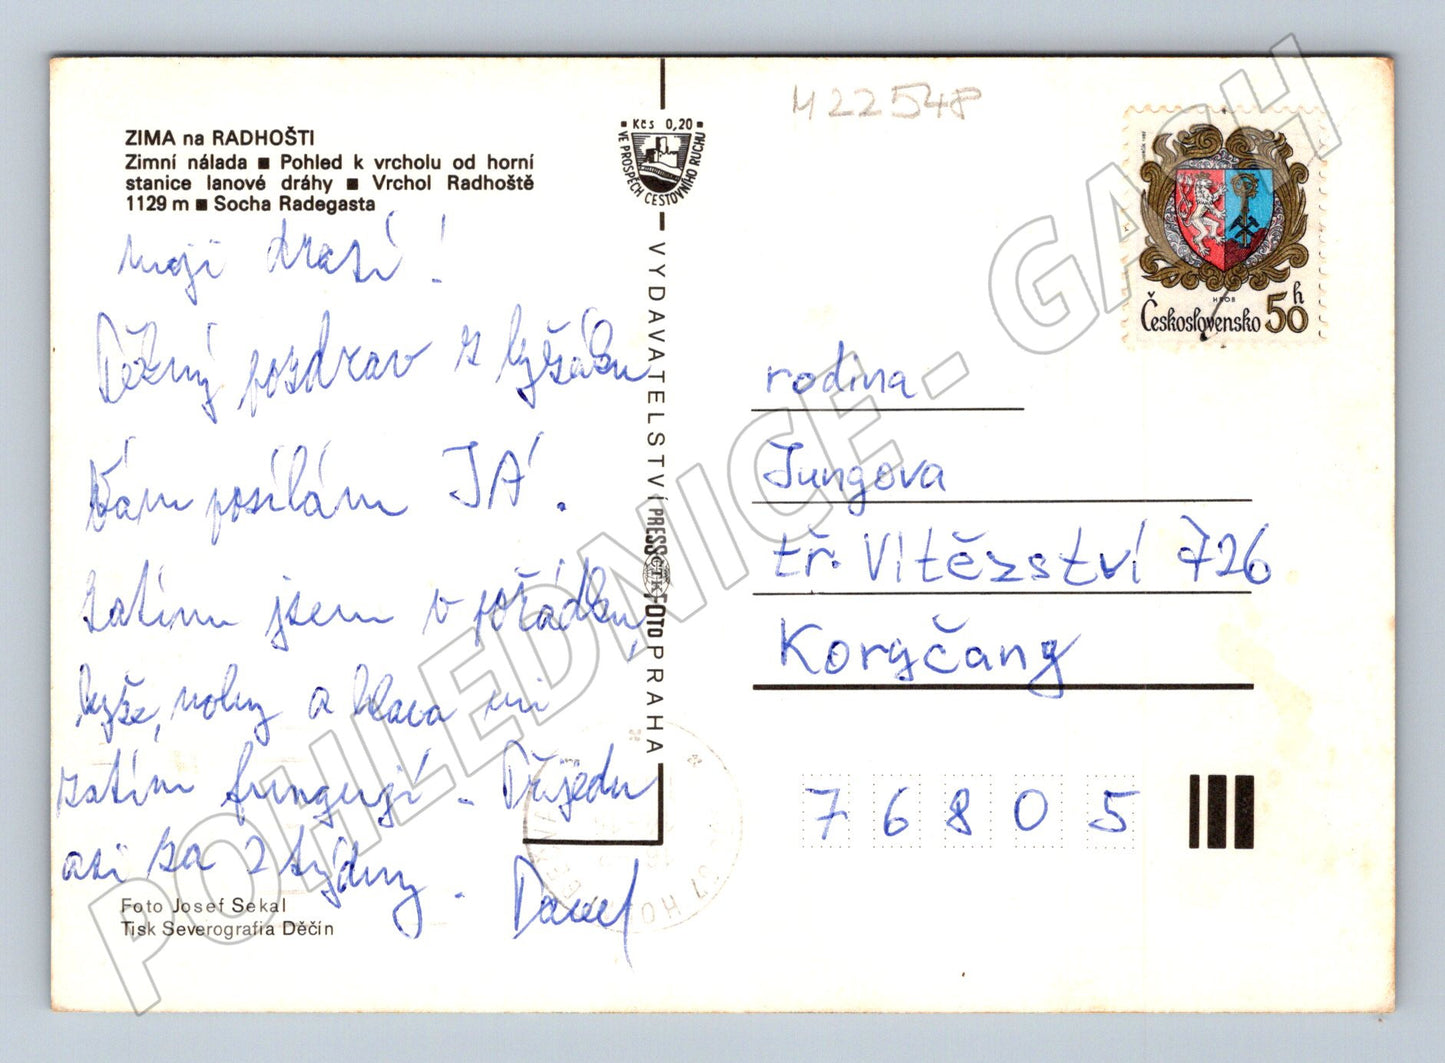 M22548
ZIMA na RADHOŠTI
Zimní nálada ■ Pohled k vrcholu od horní
stanice lanové dráhy ■ Vrchol Radhoště
1129 m ■ Socha Radegasta
moji drazí!
Pěkný pozdrav z lyžáku
Vám posílám JÁ.
zatím jsem v pořádku,
lyže, nohy a hlava mi
zatím fungují. Přijedu
asi za 2 týdny. Pavel
Foto Josef Sekal
Tisk Severografia Děčín
Kčs 0,20
VE PROSPĚCH CESTOVNÍHO RUCHU
VYDAVATELSTVÍ PRESSFOTO PRAHA
ČTK
HROB
Československo 50 h
rodina
Jungova
tř. Vítězství 726
Koryčany
76805
POHLEDNICE - GASH